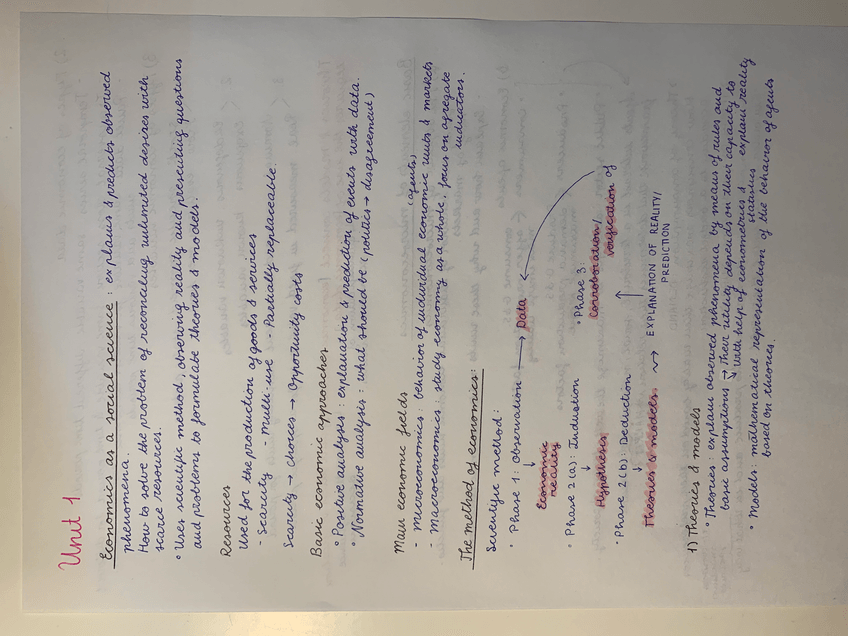 Unit 1
Economics as a social science: explains & predicts observed
phenomena.
How to solve the problem of reconciling unlimited desires with
scarce resources.
• Uses scientific method, observing reality and presenting questions
and problems to formulate theories & models.
Resources
Used for the production of goods & services
- Scarcity - Multi-use - Partially replaceable.
Scarcity → choices → Opportunity costs
Basic economic approaches
• Positive analysis: explanation & prediction of events with data.
• Normative analysis: what should be (politics → disagreement)
Main economic fields
(agents)
- Microeconomics: behavior of individual economic units & markets
- Macroeconomics: study economy as a whole, focus on agregate
indicators.
The method of economics:
Scientific method:
• Phase 1: Observation → Data
↓
Economic
reality
• Phase 2(a): Induction
↓
Hypothesis
• Phase 2(b): Deduction
↓
Theories & models
• Phase 3:
Corroboration/
verification of
↑
⇝ EXPLANATION OF REALITY/
PREDICTION
1) Theories & models
• Theories: explain observed phenomena by means of rules and
basic assumptions → Their utility depends on their capacity to
with help of econometrics & statistics explain reality
• Models: mathematical representation of the behavior of agents
based on theories.